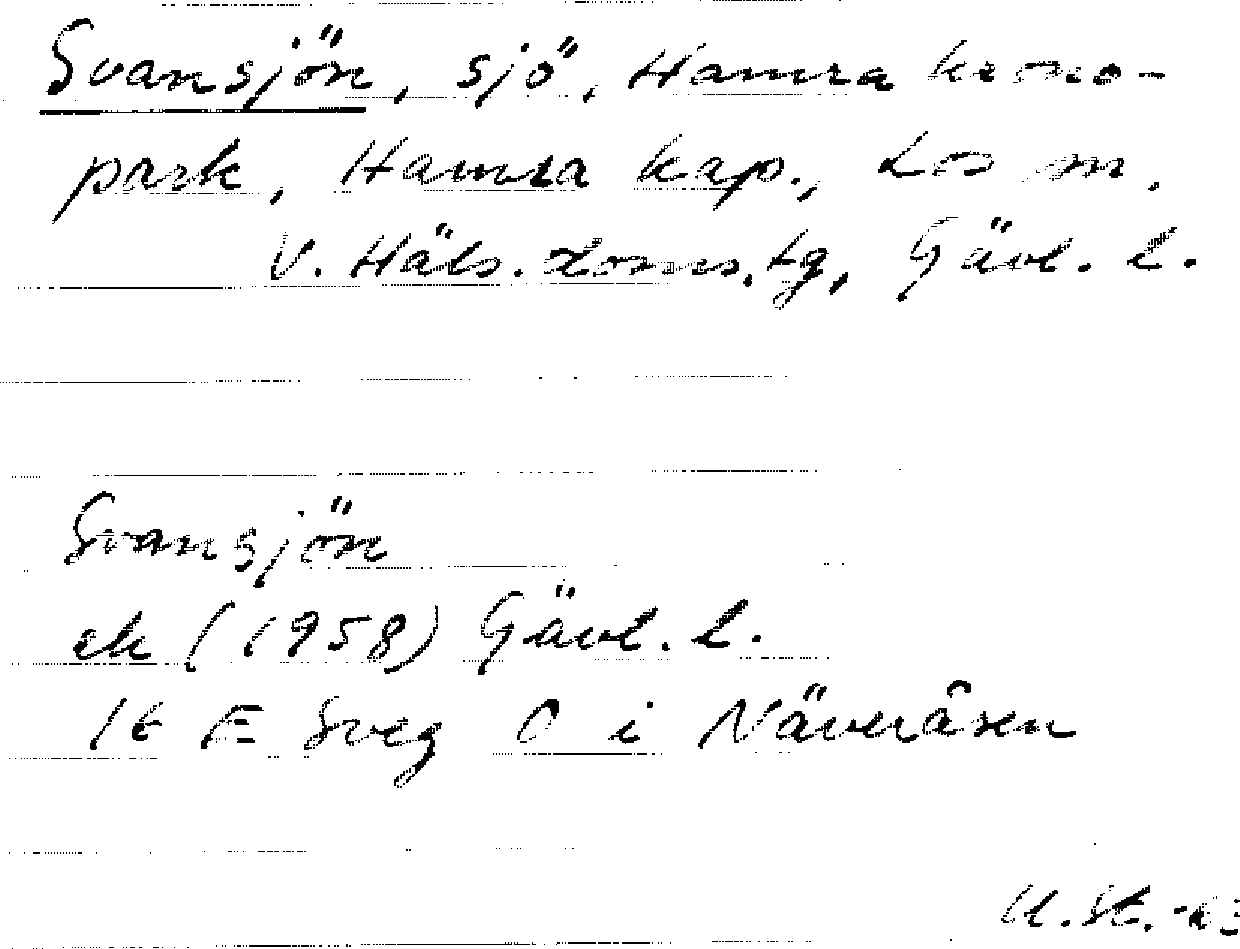 Svansjön, sjö, Hamra krono-
park, Hamra kap., Los sn.
V. Häls. doms.tg, Gävl. l.
Svansjön
ek (1958) Gävl. l.
16 E Sveg O i Näveråsen
U.St.